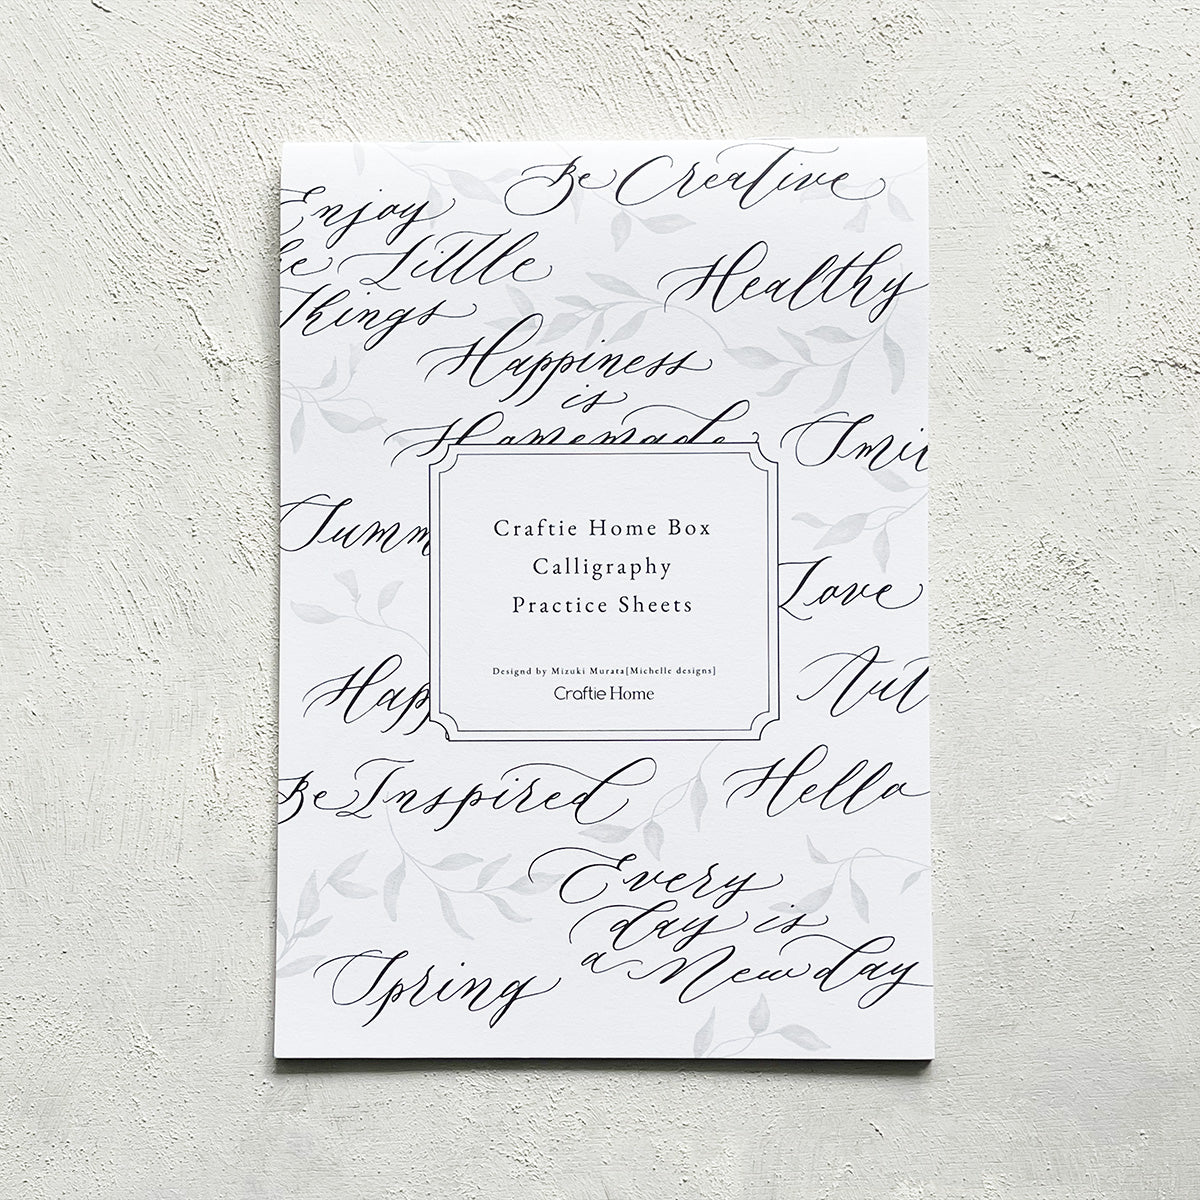 Be Creative
Enjoy
Little
Things
Healthy
Happiness
is
Homemade
Smi
Summ
Craftie Home Box
Calligraphy
Practice Sheets
Love
Designd by Mizuki Murata[Michelle designs]
Craftie Home
Hap
Aut
Be Inspired
Hello
Every
day is
a New day
Spring